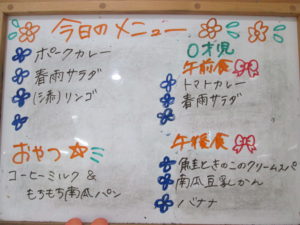 今日のメニュー
ポークカレー
春雨サラダ
(添)リンゴ
おやつ
コーヒーミルク &
もちもち南瓜パン
0才児
午前食
トマトカレー
春雨サラダ
午後食
鮭ときのこのクリームスパ
南瓜豆乳かん
バナナ